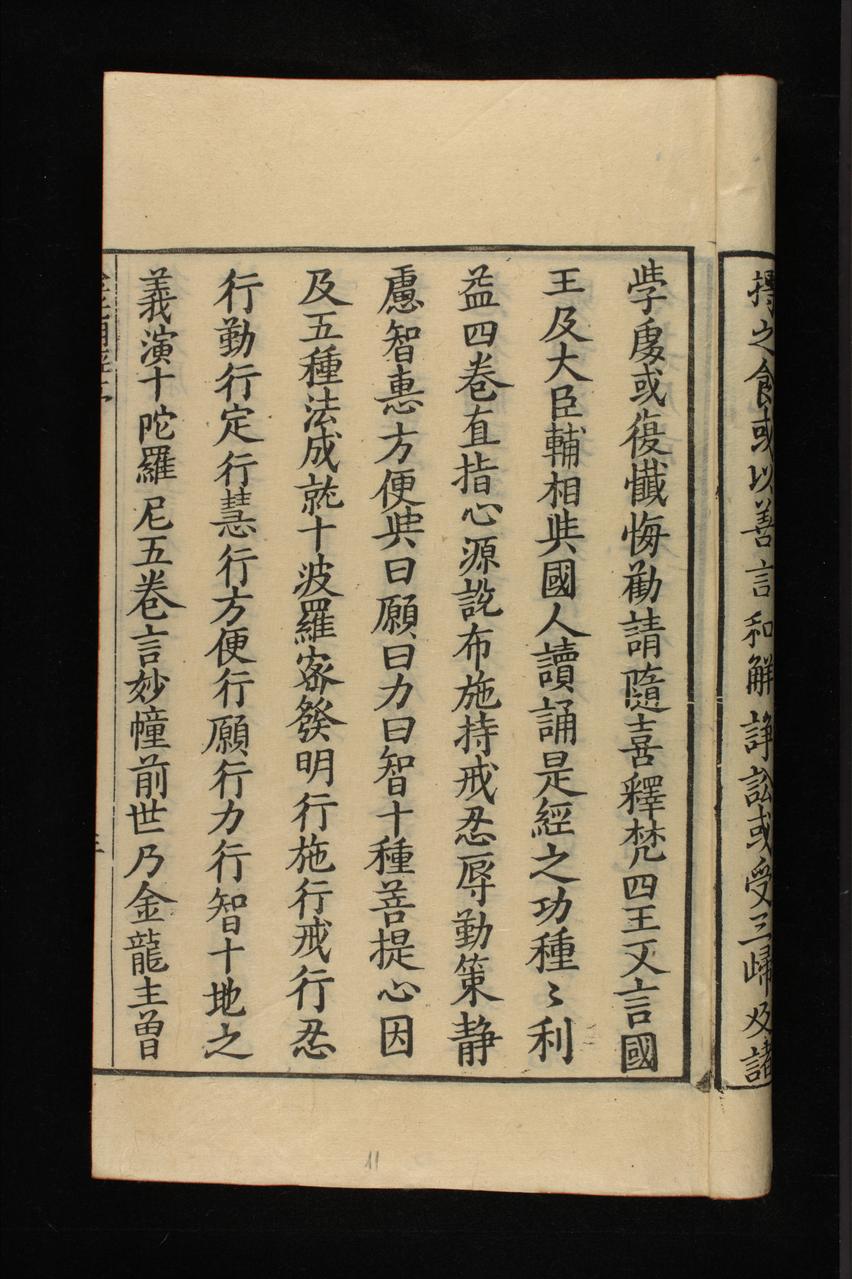 摶之食或以善言和解諍訟或受三歸及諸
學處或復懺悔勸請隨喜釋梵四王又言國
王及大臣輔相與國人讀誦是經之功種〻利
益四卷直指心源説布施持戒忍辱勤策静
慮智恵方便與曰願曰力曰智十種菩提心因
及五種法成就十波羅密發明行施行戒行忍
行勤行定行慧行方便行願行力行智十地之
義演十陀羅尼五卷言妙幢前世乃金龍主曽
三